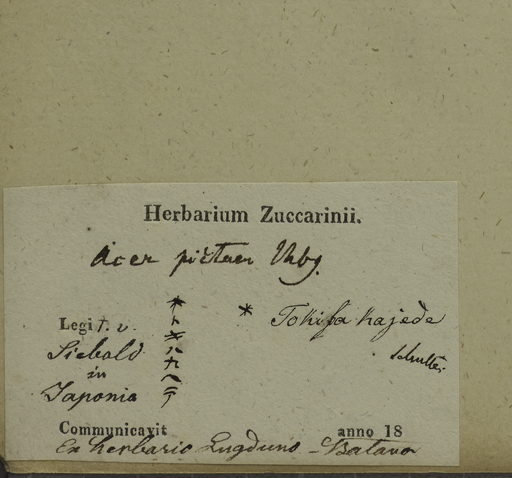 Herbarium Zuccarinii.
Acer pictum Thbg.
Legi T. v.
Siebold
in
Japonia
* Tokifa Kajede
Schultes.
Communicavit anno 18
Ex herbario Lugduno-Batavo